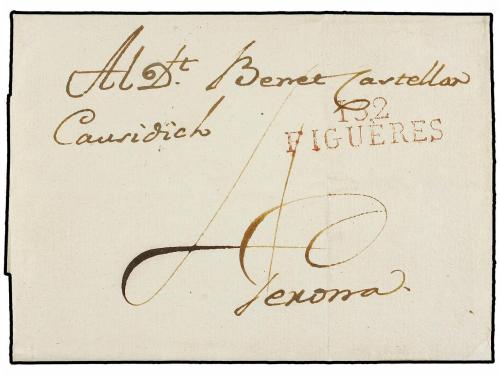 Al Dt. Benet Castellar
132
Causidich
FIGUÈRES
4
Gerona.